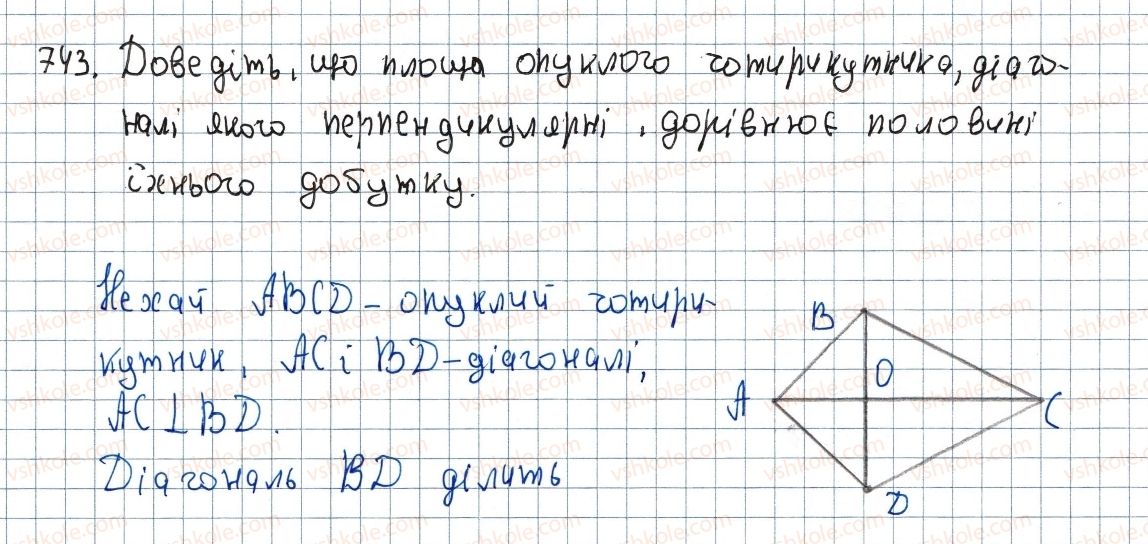 743. Доведіть, що площа опуклого чотирикутника, діаго-
налі якого перпендикулярні, дорівнює половині
їхнього добутку.
Нехай ABCD - опуклий чотири-
кутник, AC і BD - діагоналі,
AC ⊥ BD.
Діагональ BD ділить
B
O
A
C
D